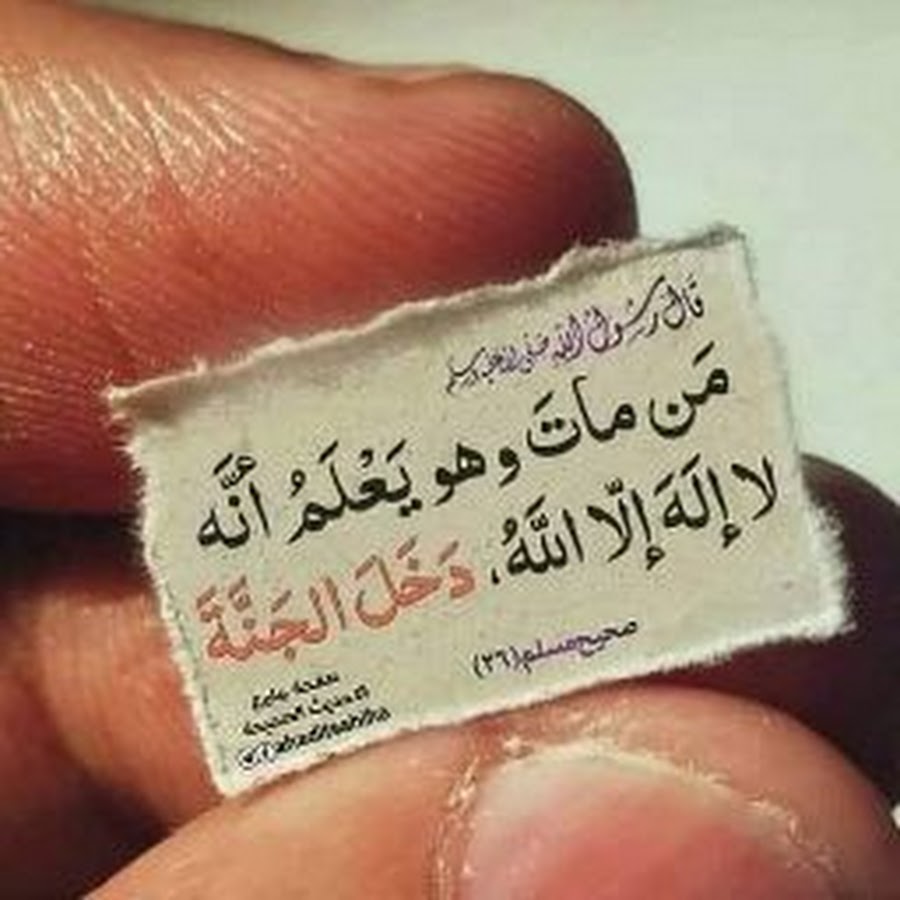 قَالَ رَسُولُ اللهِ صلى الله عليه وسلم
مَن ماتَ وهو يَعْلَمُ أنَّه
لا إلَهَ إلّا اللَّهُ، دَخَلَ الجَنَّةَ
صحيح مسلم (٢٦)